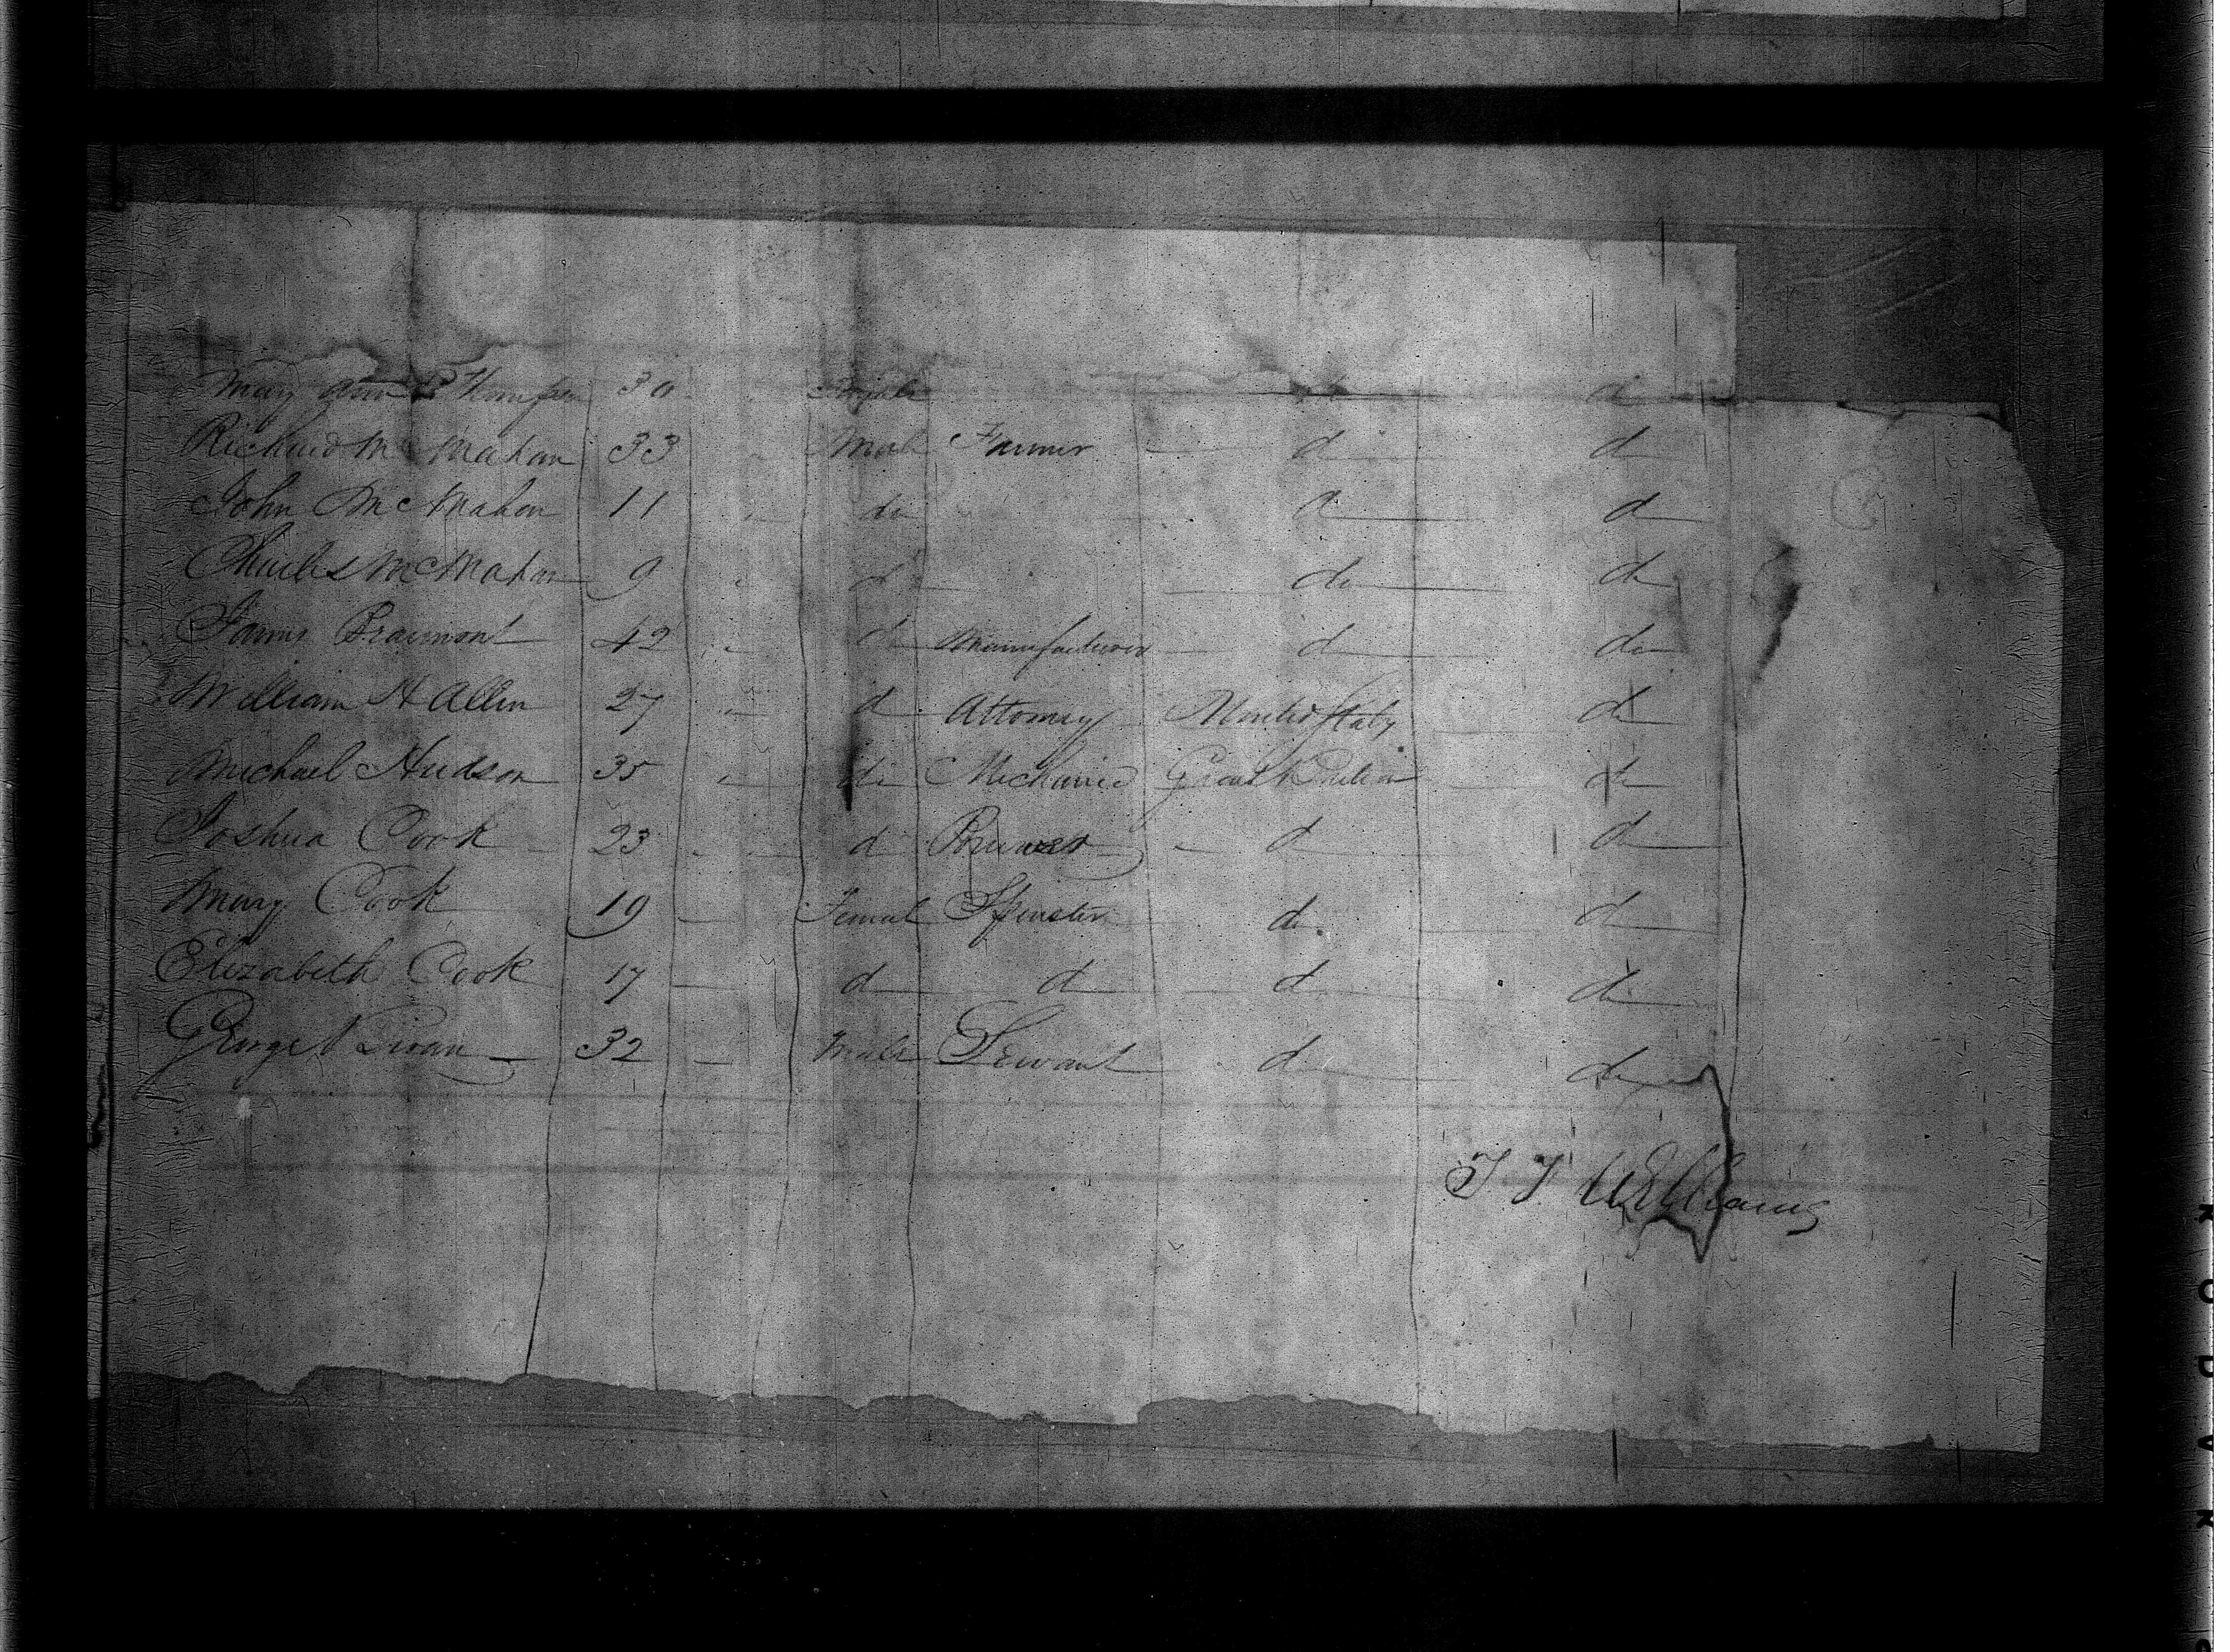 Mary Ann Thompson 30 Female d
Richard McMahan 33 Male Farmer d d
John McMahon 11 do d d
Charles McMahon 9 d do do
James Beaumont 42 d Manufacturer d do
William H Allen 27 d Attorney United States do
Michael Hudson 35 do Mechanic Great Britain do
Joshua Cook 23 d Brewer d d
Mary Cook 19 Female Spinster do d
Elizabeth Cook 17 d d d do
George 32 Male Servant d do
T T Williams
KODAK